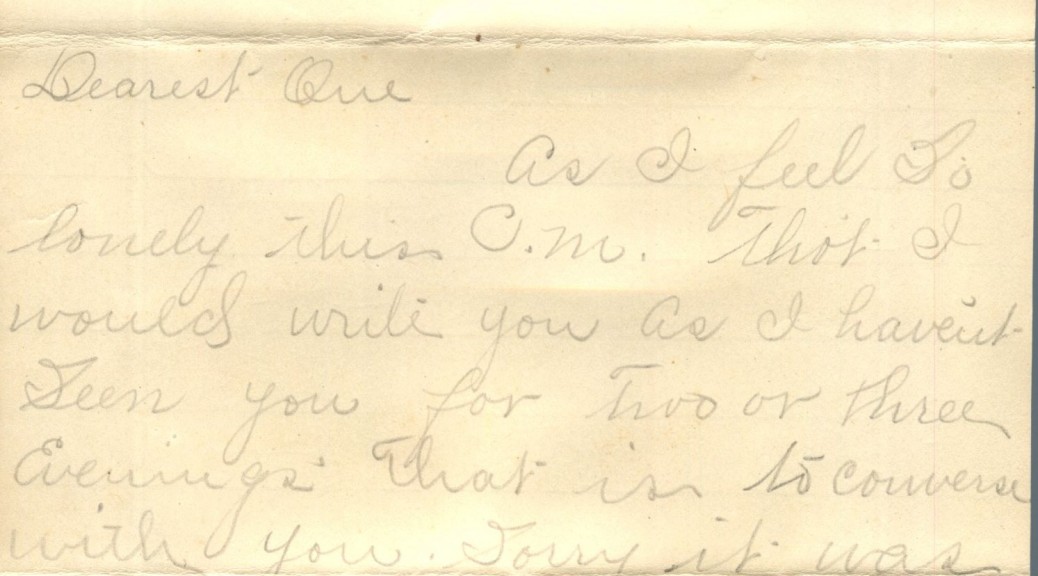 Dearest One
As I feel So
lonely this P.m. Thot I
would write you as I haven't
Seen you for Two or three
Evenings That is to converse
with you. Sorry it was